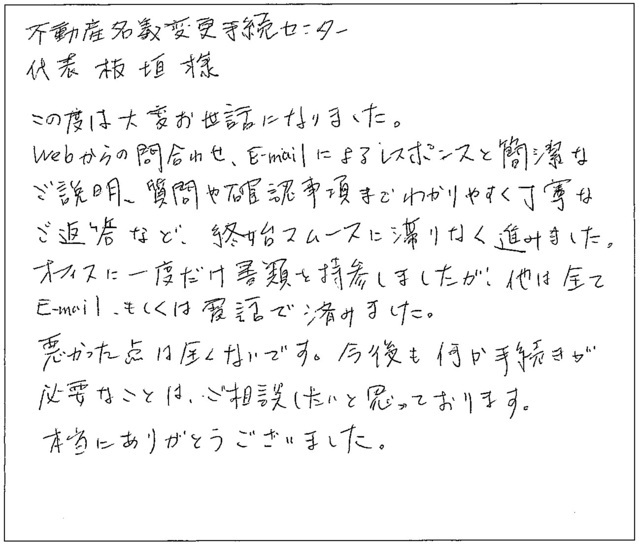 不動産名義変更手続センター
代表 板垣 様
この度は大変お世話になりました。
Webからの問合わせ、E-mailによるレスポンスと簡潔な
ご説明、質問や確認事項までわかりやすく丁寧な
ご返答など、終始スムースに滞りなく進みました。
オフィスに一度だけ書類を持参しましたが、他は全て
E-mail、もしくは電話で済みました。
悪かった点は全くないです。今後も何か手続きが
必要なことは、ご相談したいと思っております。
本当にありがとうございました。